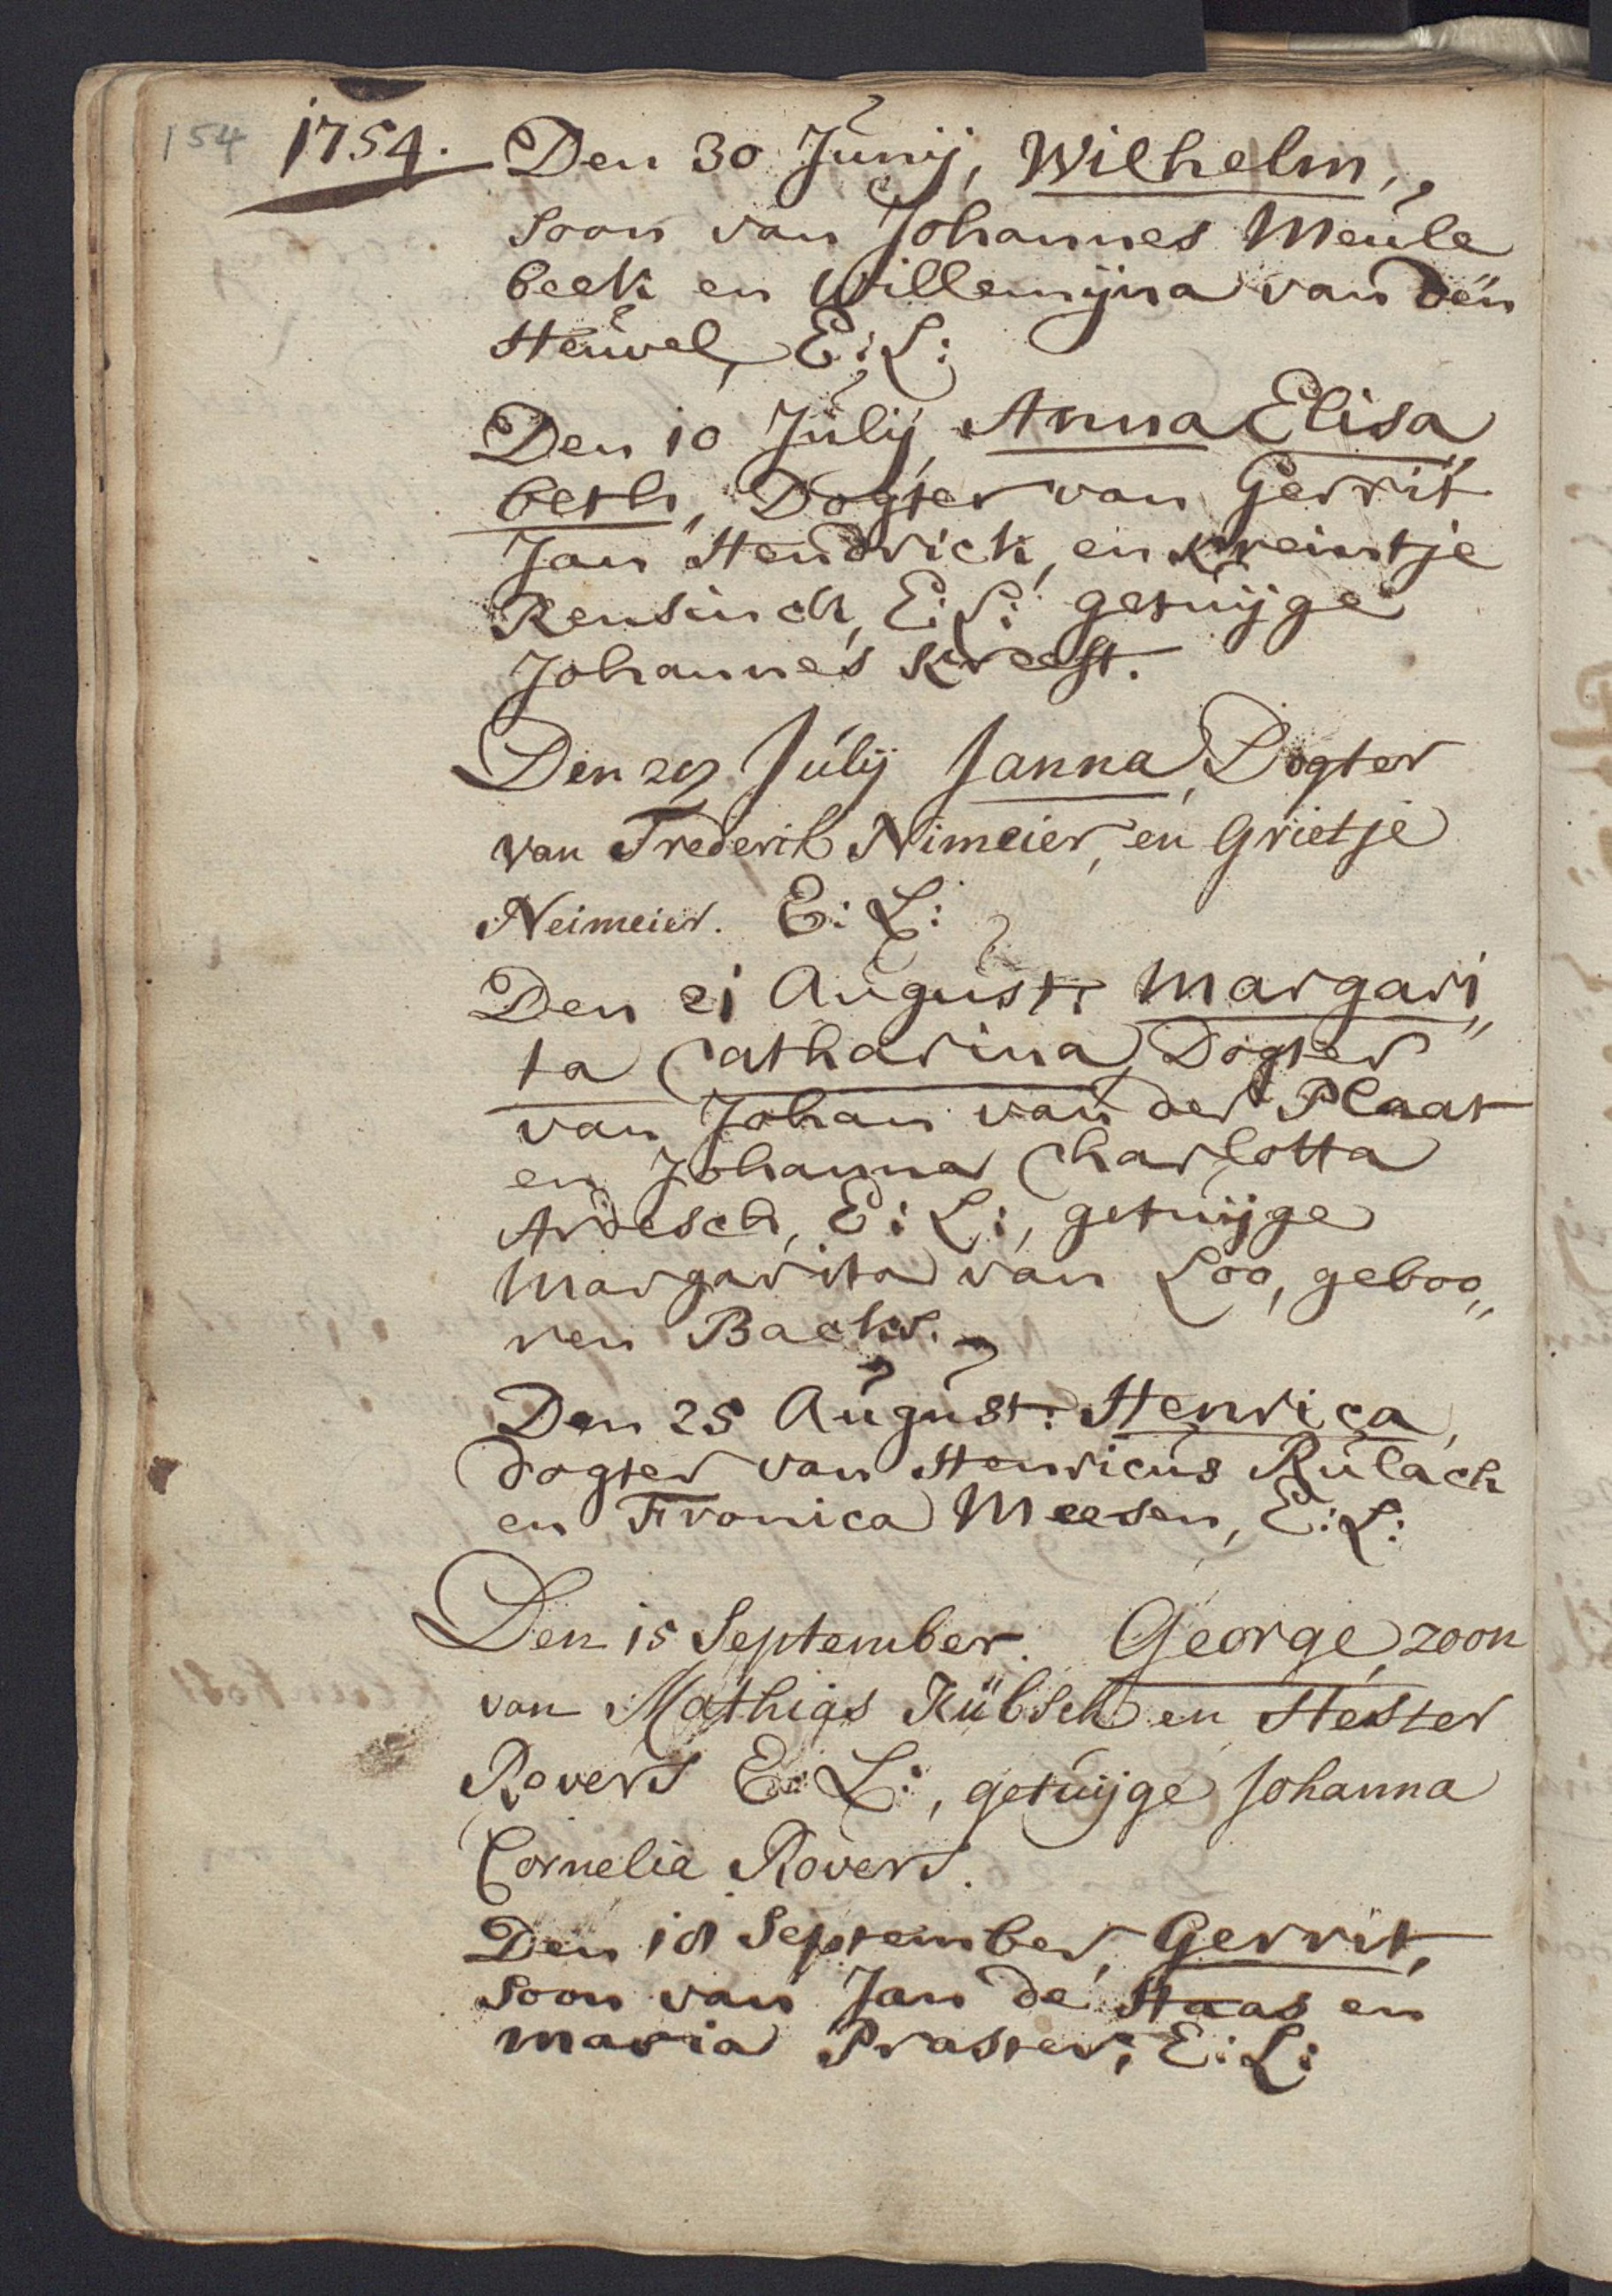 154 1754. Den 30 Junij, Wilhelm,,
soon van Johannes Meule
beek en Willemijna van den
Heuvel, E: L:
Den 10 Julij, Anna Elisa
beth, Dogter van Gerrit
Jan Hendrick, en Kreintje
Rensinck, E: L: getuijge
Johannes Kreeft.
Den 29 Julij Janna, Dogter
van Frederik Nimeier, en Grietje
Neimeier. E: L:
Den 21 August: Margari,,
ta Catharina, Dogter
van Johan van der Plaat
en Johanna Charlotta
Ardesch, E: L:, getuijge
Margarita van Loo, geboo,,
ren Backs.
Den 25 August: Henrica,
dogter van Henricus Rulach
en Fronica Meesen, E: L:
Den 15 September. George, zoon
van Mathias Kübsch en Hester
Rovers E: L:, getuijge Johanna
Cornelia Rovers.
Den 18 September, Gerrit,
soon van Jan de Haas en
Maria Praster, E: L: